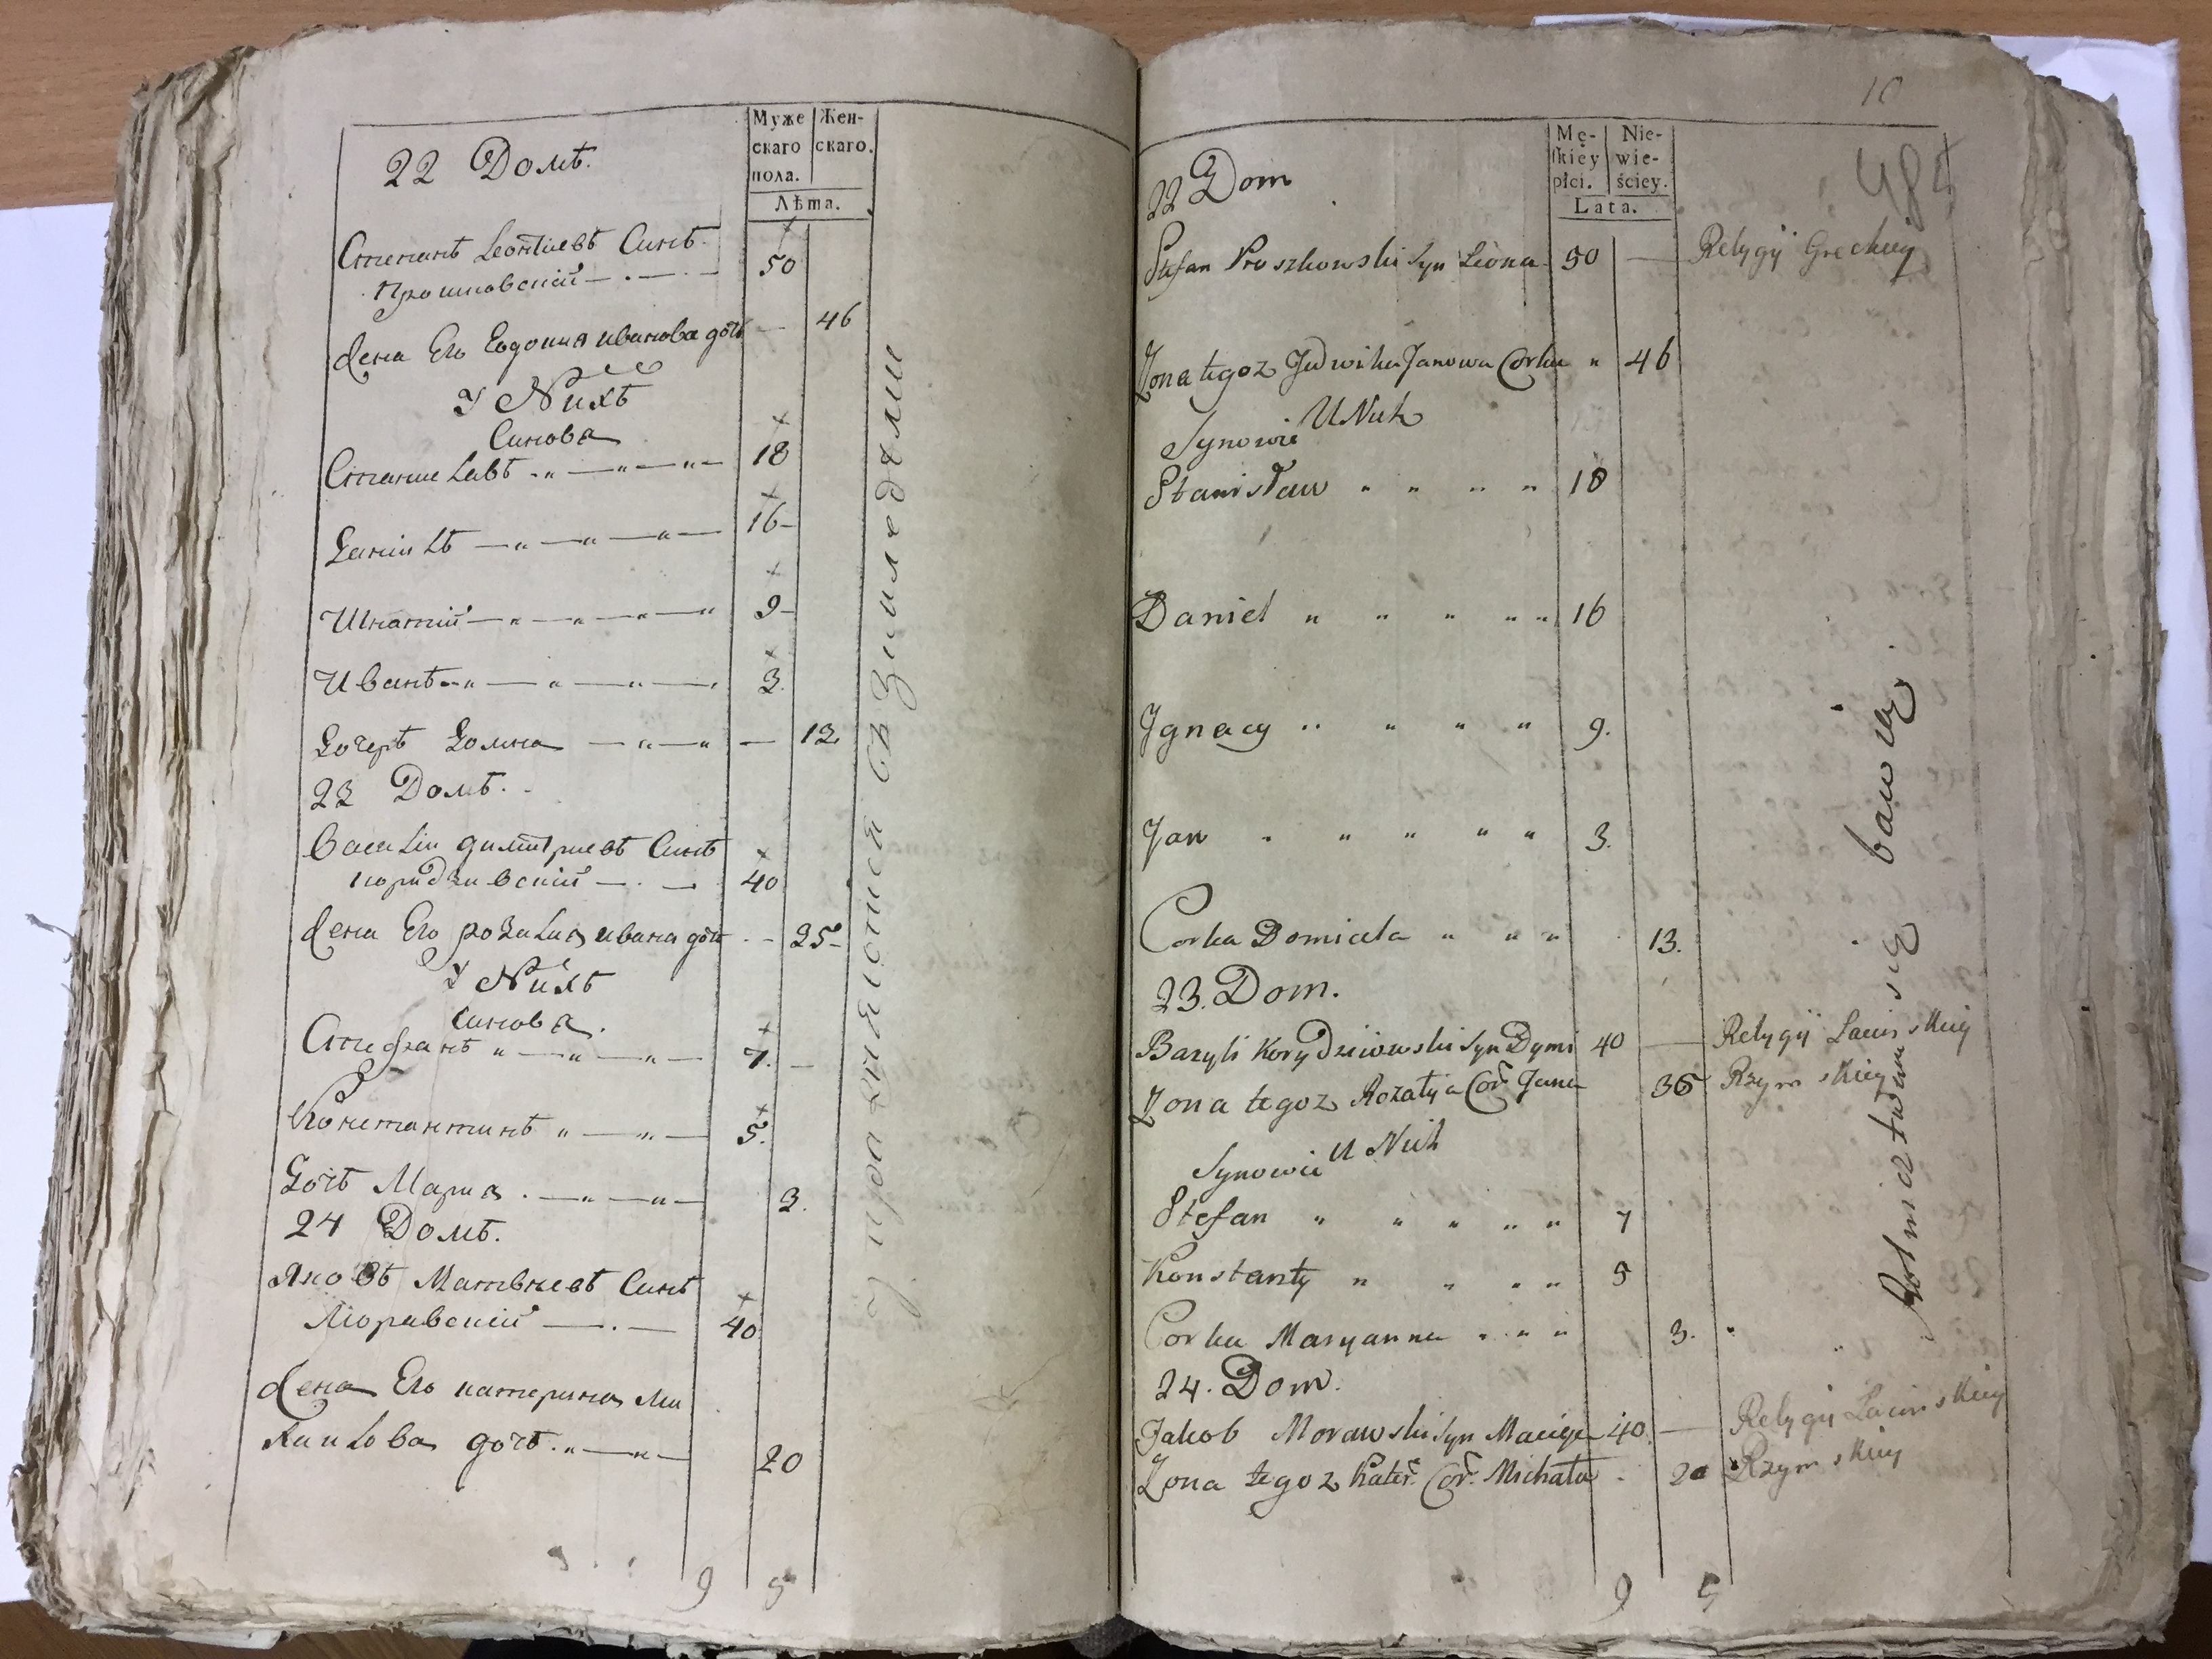 Муже
скаго
пола.
Жен-
скаго.
Лѣта.
22 Домъ.
Степанъ Леонтіевъ Синъ
Прошковскій 50
Жена Его Евдокия иванова дочь 46
У Нихъ
Синова
Станиславъ 18
Данiилъ 16
Игнатий 9
Иванъ 3.
Дочеръ Домна 13
23 Домъ.
Василiи димитриевъ Синъ
коридзивский 40
Жена Его розалия ивана дочь 35
У Нихъ
Синова.
Стефанъ 7.
Константинъ 5.
Дочъ Мария 3.
24 Домъ.
Яковъ Матвиевъ Синъ
Моравский 40
Жена Его катерина Ми
хаилова дочъ 20
9 5
упражняются въ Земледелии
10
Mę-
ſkiey
płci.
Nie-
wie-
ściey.
Lata.
22 Dom
Stefan Proszkowski Syn Leona 50 — Relygij Greckiej
Zona tegoz Jedwika Janowa Corka " 46
U Nich
Synowie
Stanisław " " " " 18
Daniel " " " " " 16
Jgnacy " " " " 9.
Jan " " " " " 3.
Corka Domicela " " " 13.
23. Dom.
Bazyli Korydziowski Syn Dymi 40 — Relygij Lacinskiej
Zona tegoz Rozalya Cor Jana 35 Rzymskiej
U Nich
Synowie
Stefan " " " " " 7
Konstanty " " " " 5
Corka Maryanna " " " 3.
24. Dom.
Jakob Morawski Syn Macieja 40. — Relygij Lacinskiej
Zona tegoz Kater. Cor. Michała 20 Rzymskiej
9 5
Rolnictwem się bawią.